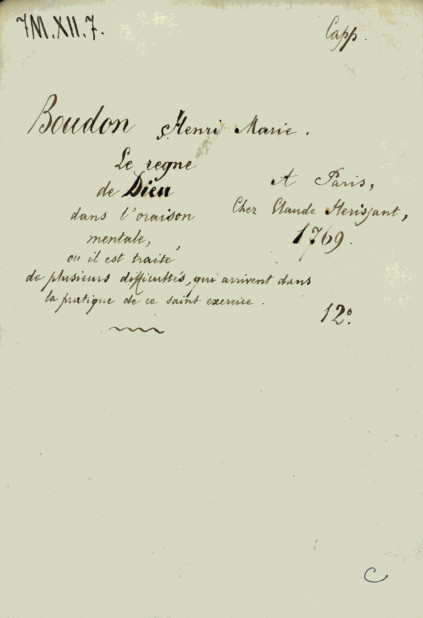 7M.XII.7.
Capp.
Boudon, Henri Marie.
Le regne
de Dieu
dans l'oraison
mentale,
ou il est traité
de plusieurs difficultés, qui arrivent dans
la pratique de ce saint exercise.
A Paris,
Chez Claude Herisjant,
1769.
12º
C